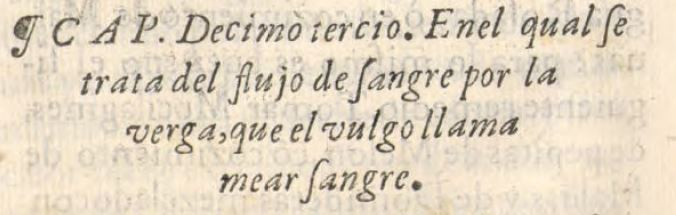 ¶ C A P. Decimo tercio. Enel qual ſe
trata del flujo de ſangre por la
verga, que el vulgo llama
mear ſangre.